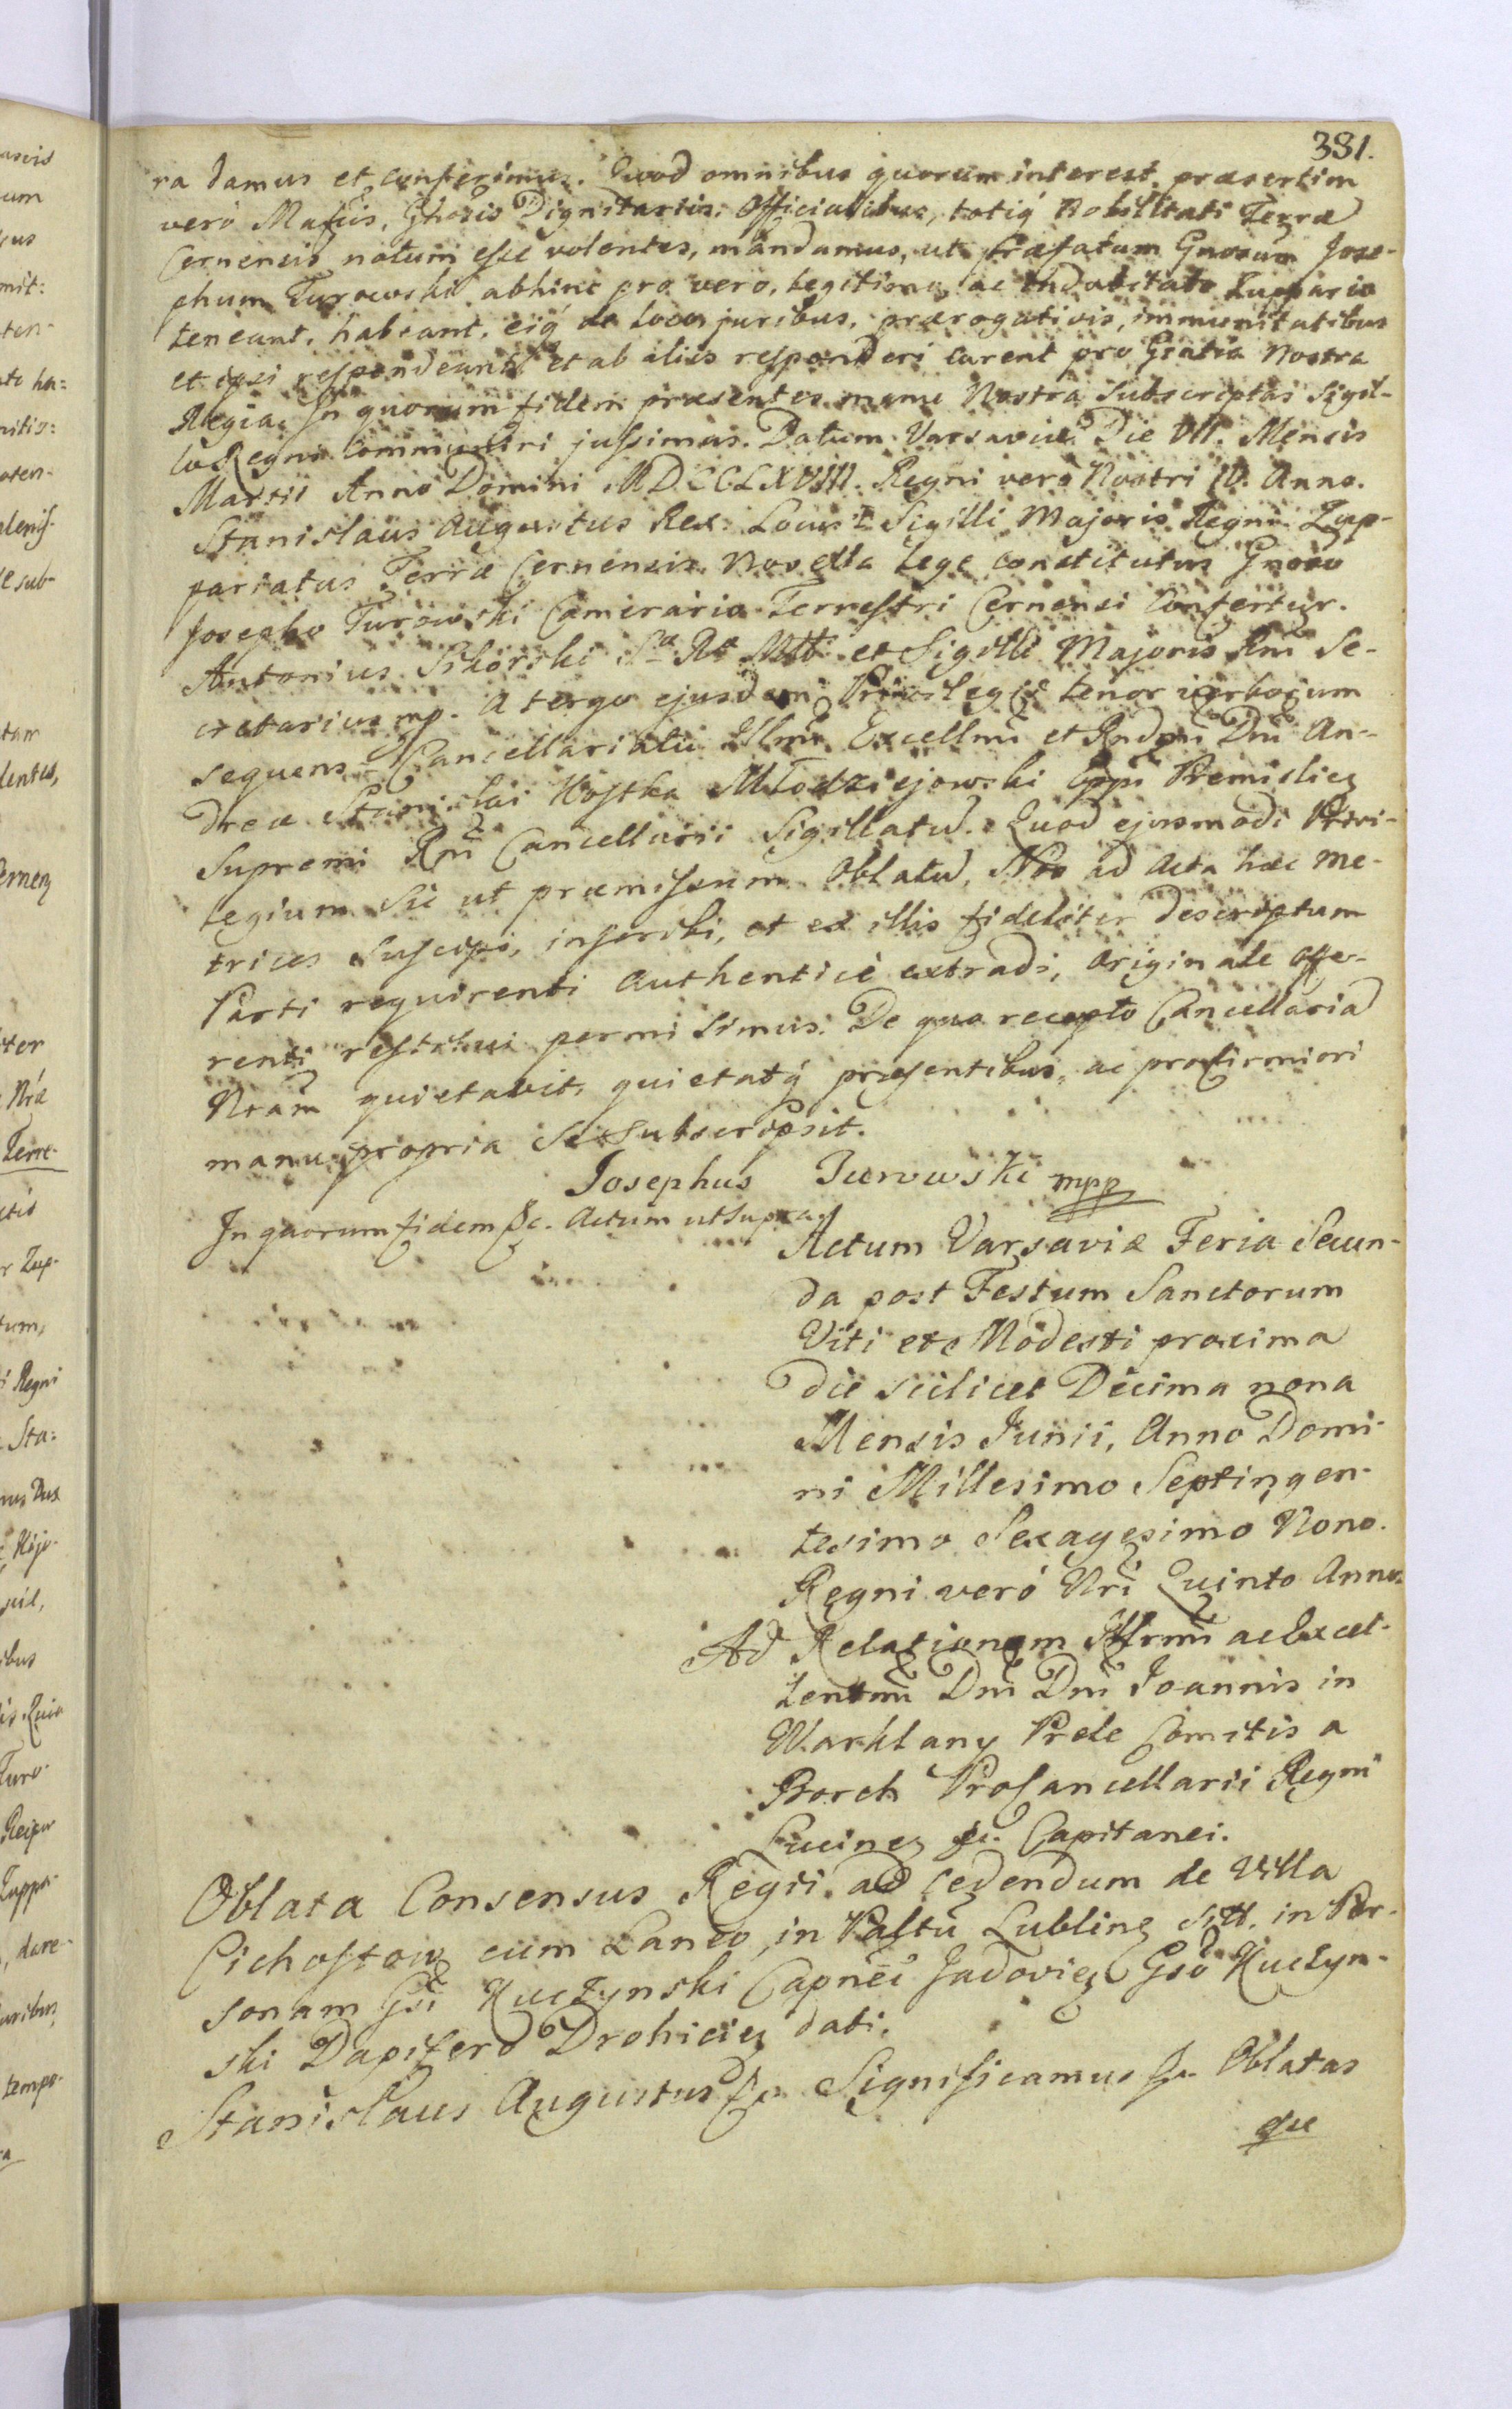 381.
ra damus et conferimus. Quod omnibus quorum interest, præsertim
verò Mafcis, Ghosis Dignitariis, Officialibus, totiq́ Nobilitati Terræ
Cernensis notum esse volentes, mandamus, ut Præfatum Gnosum Jose-
phum Turowski abhinc pro vero, legitimo, ac indubitato Luppario
teneant, habeant, eiq́ de loco, juribus, prærogativis, immunitatibus
et ipsi respondeant et ab aliis responderi curent pro Gratia Nostra
Regia. In quorum fidem præsentes manu Nostra Subscriptas Sigil-
lo Regni Communiri jussimus. Datum Varsaviæ Die VII. Mensis
Martii Anno Domini MDCCLXVIII. Regni verò Nostri IV. Anno.
Stanislaus Augustus Rex. Locus Sigilli Majoris Regni. Zup-
pariatus Terræ Cernensis Novella Lege constitutus Gnoso
Josepho Turowski Camerario Terrestri Cernensi Confertur.
Antonius Sikorski Sæ Ræ Mtt. et Sigilli Majoris Rni Se-
cretarius mp. A tergo ejusdem Privilegii tenor verborum
sequens. Cancellariatu Illmi Excellmi et Rndmi Dni An-
dreæ Stanislai Kostka Młodziejowski Eppi Premislien
Supremi Rni Cancellarii Sigillatum. Quod ejusmodi Privi-
legium sic ut præmissum Oblatum, Nos ad Acta hæc Me-
trices Suscipi, inscribi, et ex illis fideliter descriptum
Parti requirenti authenticè extradi, originale offe-
renti restitui permisimus. De quo recepto Cancellariam
Nram quietavit, quietatq́ præsentibus, ac pro firmiori
manu propria Se Subscripsit.
Josephus Turowski mpp
In quorum fidem &c. Actum ut supra.
Actum Varsaviæ Feria Secun-
da post Festum Sanctorum
Viti et Modesti proxima
die scilicet Decima nona
Mensis Junii, Anno Domi-
ni Millesimo Septingen-
tesimo Sexagesimo Nono.
Regni verò Nri Quinto Anno.
Ad Relationem Illrmi ac Excel-
lentmi Dni Dni Joannis in
Warklany Prele Comitis a
Borch ProCancellarii Regni
Lucinen &c. Capitanei.
Oblata Consensus Regii ad cedendum de Villa
Cichostow cum Laneo, in Palttu Lublinen sitt. in Per-
sonam Gsi Kuczynski Capnei Jadovien Gso Kuczyn-
ski Dapifero Drohicien dati.
Stanislaus Augustus &c. Significamus &c. Oblatas
que